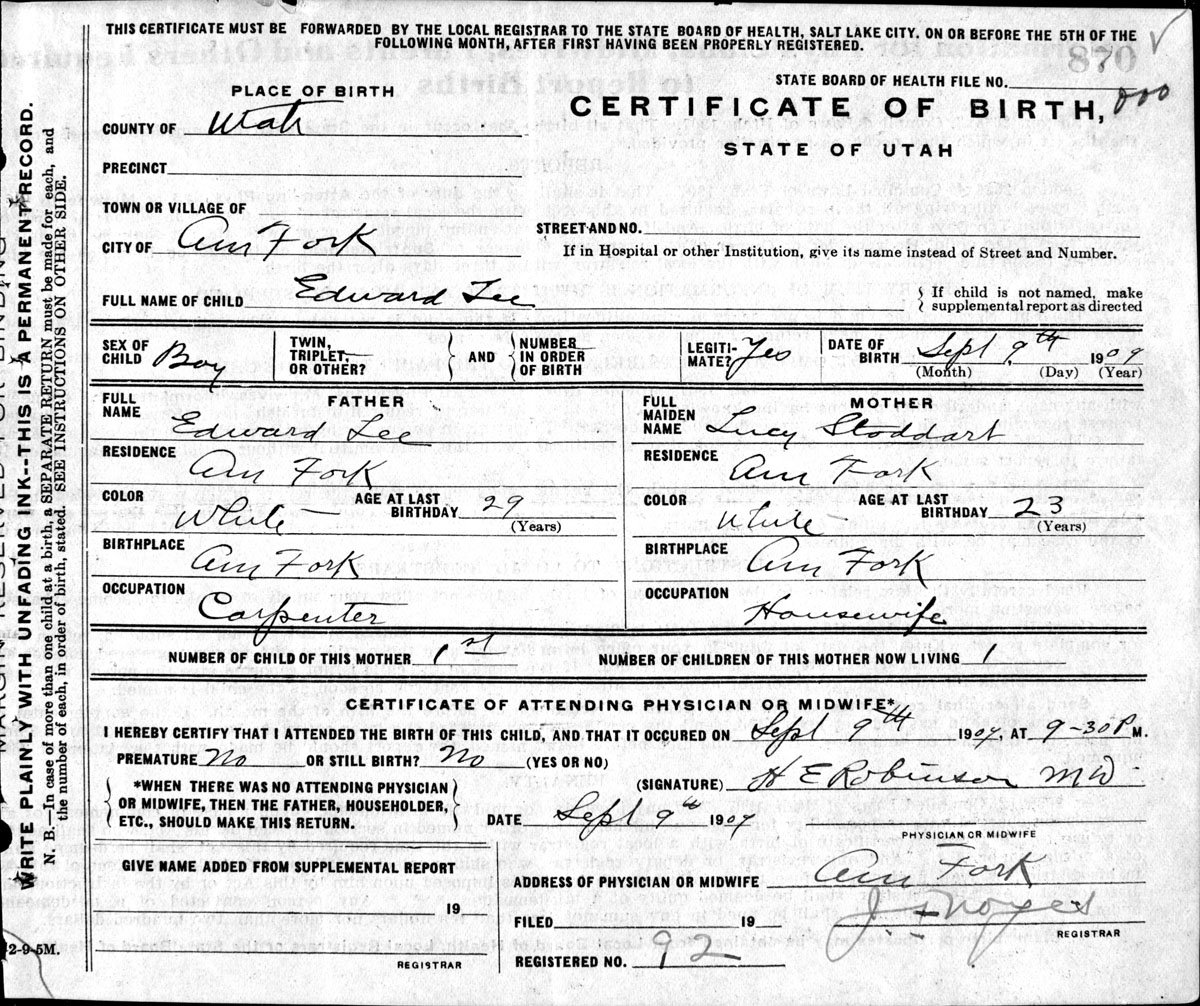 THIS CERTIFICATE MUST BE FORWARDED BY THE LOCAL REGISTRAR TO THE STATE BOARD OF HEALTH, SALT LAKE CITY. ON OR BEFORE THE 5TH OF THE
FOLLOWING MONTH, AFTER FIRST HAVING BEEN PROPERLY REGISTERED.
STATE BOARD OF HEALTH FILE NO.
PLACE OF BIRTH
CERTIFICATE OF BIRTH,
STATE OF UTAH
COUNTY OF Utah
PRECINCT
TOWN OR VILLAGE OF
STREET AND NO.
CITY OF Am Fork
If in Hospital or other Institution, give its name instead of Street and Number.
FULL NAME OF CHILD Edward Lee
If child is not named, make
supplemental report as directed
SEX OF CHILD Boy
TWIN, TRIPLET, OR OTHER?
AND
NUMBER IN ORDER OF BIRTH
LEGITI-MATE? Yes
DATE OF BIRTH Sept 9th 1909
(Month) (Day) (Year)
FATHER
FULL NAME Edward Lee
RESIDENCE Am Fork
COLOR White
AGE AT LAST BIRTHDAY 29
(Years)
BIRTHPLACE Am Fork
OCCUPATION Carpenter
MOTHER
FULL MAIDEN NAME Lucy Stoddart
RESIDENCE Am Fork
COLOR White
AGE AT LAST BIRTHDAY 23
(Years)
BIRTHPLACE Am Fork
OCCUPATION Housewife
NUMBER OF CHILD OF THIS MOTHER 1st NUMBER OF CHILDREN OF THIS MOTHER NOW LIVING 1
CERTIFICATE OF ATTENDING PHYSICIAN OR MIDWIFE*
I HEREBY CERTIFY THAT I ATTENDED THE BIRTH OF THIS CHILD, AND THAT IT OCCURED ON Sept 9th 1909, AT 9-30 P. M.
PREMATURE No OR STILL BIRTH? No (YES OR NO)
*WHEN THERE WAS NO ATTENDING PHYSICIAN
OR MIDWIFE, THEN THE FATHER, HOUSEHOLDER,
ETC., SHOULD MAKE THIS RETURN.
(SIGNATURE) H E Robinson MD
DATE Sept 9th 1909
PHYSICIAN OR MIDWIFE
GIVE NAME ADDED FROM SUPPLEMENTAL REPORT
19
REGISTRAR
ADDRESS OF PHYSICIAN OR MIDWIFE Am Fork
FILED 19
J. F. Noyes
REGISTRAR
REGISTERED NO. 92
2-9-5M.
WRITE PLAINLY WITH UNFADING INK--THIS IS A PERMANENT RECORD.
N. B.—In case of more than one child at a birth, a SEPARATE RETURN must be made for each, and
the number of each, in order of birth, stated. SEE INSTRUCTIONS ON OTHER SIDE.